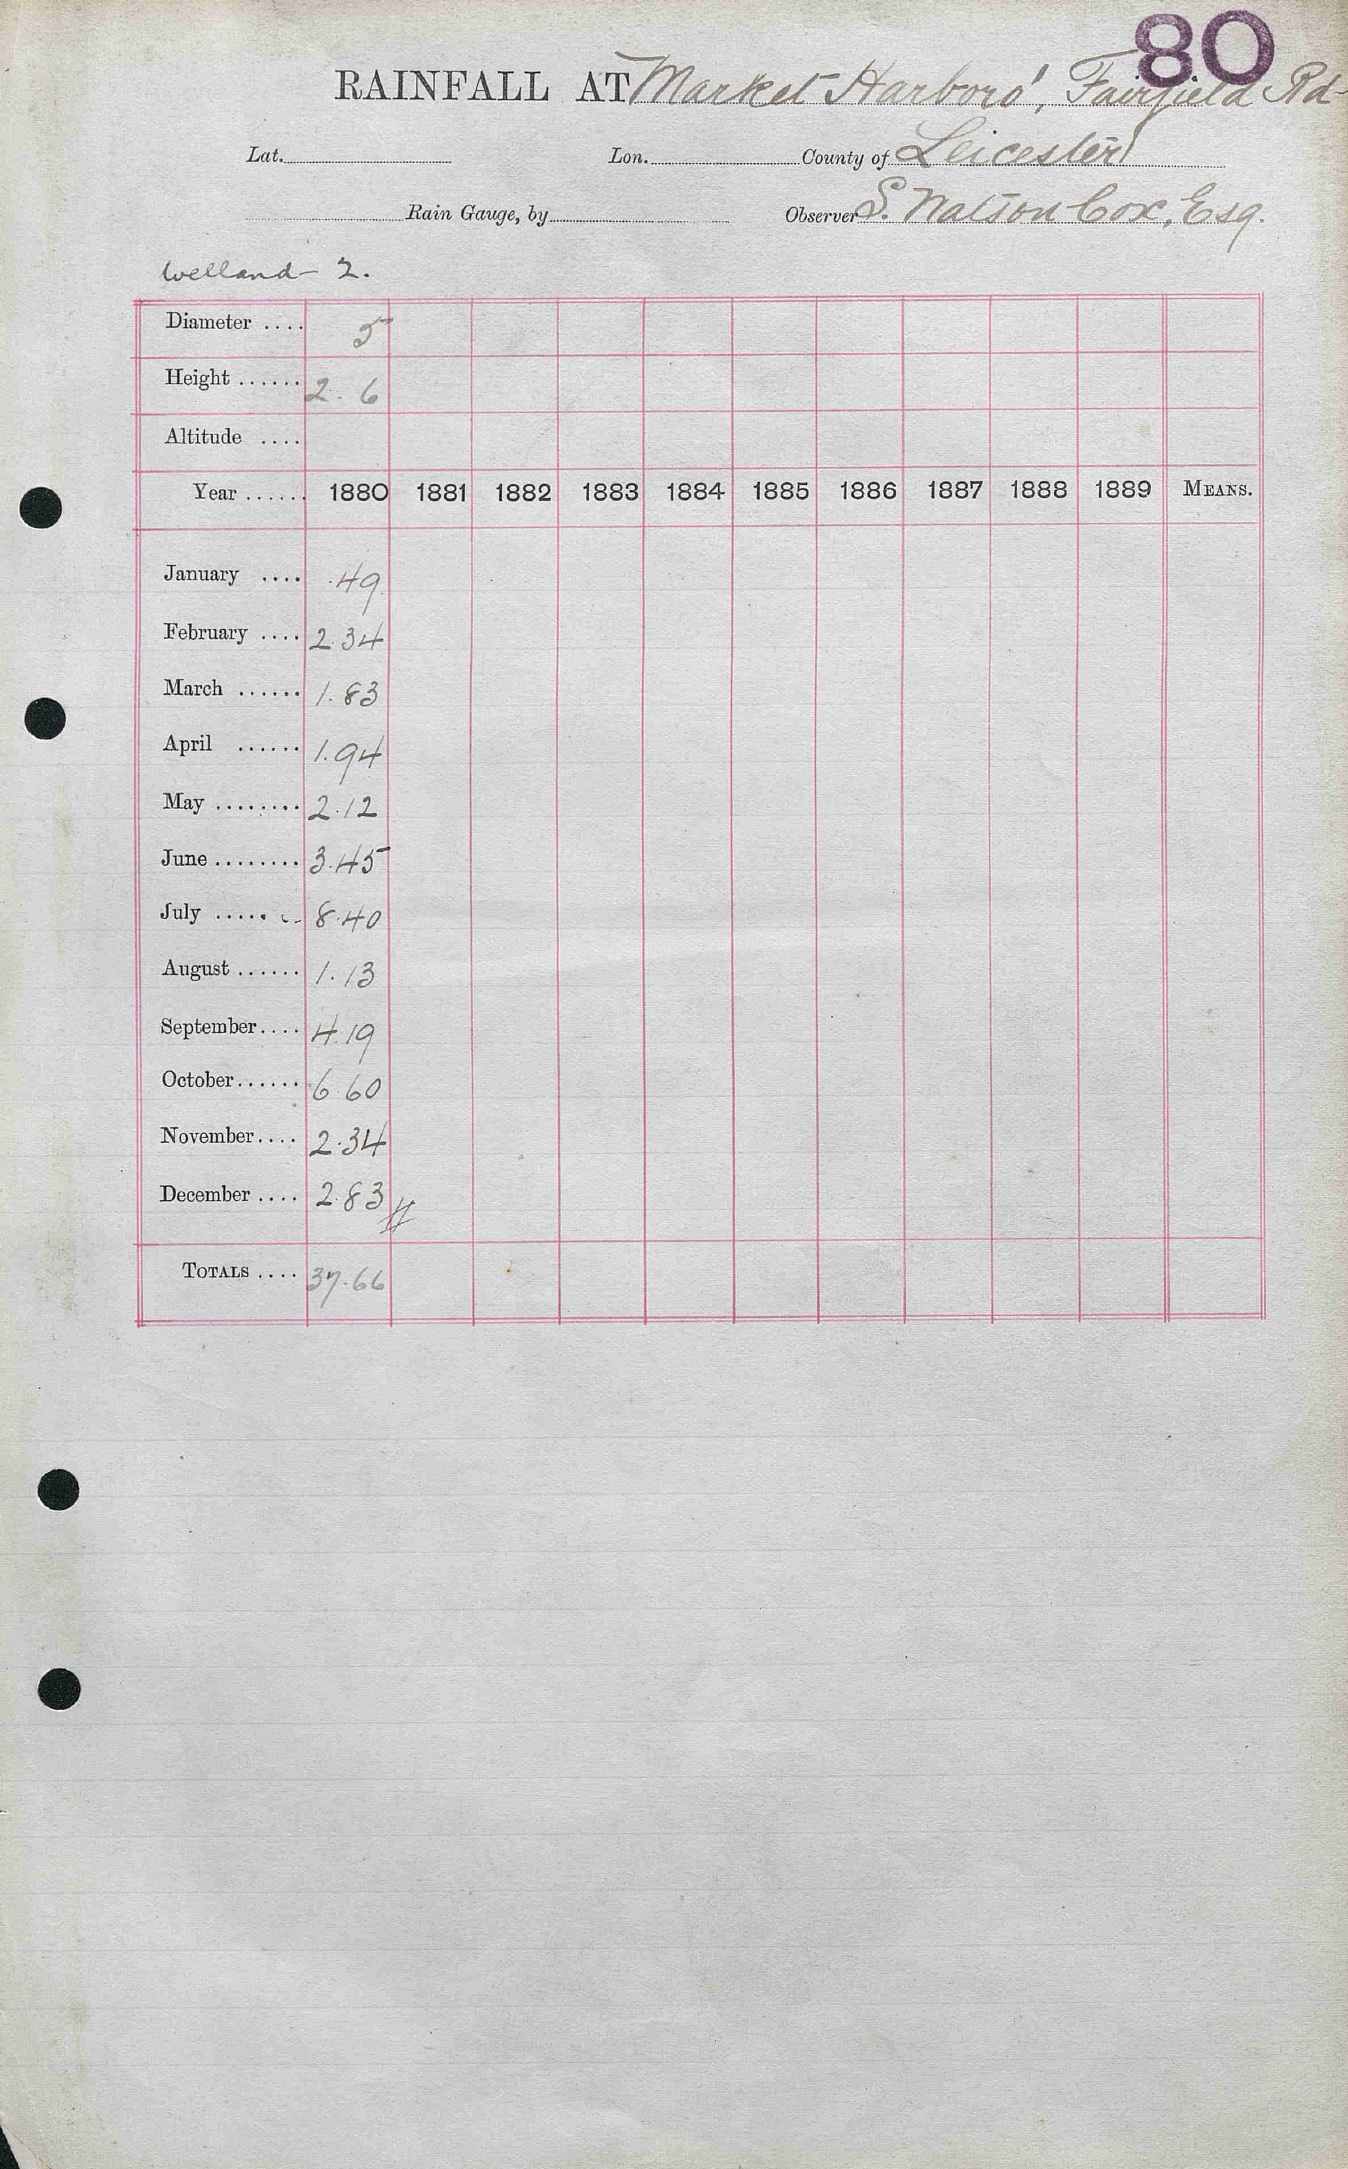 80
RAINFALL AT Market Harboro', Fairfield Rd
Lat. Lon. County of Leicester
Rain Gauge, by Observer S. Watson Cox, Esq.
Welland - 2.
Diameter .... 5
Height ...... 2. 6
Altitude ....
Year ...... 1880 1881 1882 1883 1884 1885 1886 1887 1888 1889 MEANS.
January .... .49
February .... 2.34
March ...... 1.83
April ...... 1.94
May ........ 2.12
June ........ 3.45
July ....... 8.40
August ...... 1.13
September .... 4.19
October ...... 6 60
November .... 2.34
December .... 2.83
TOTALS .... 37.66